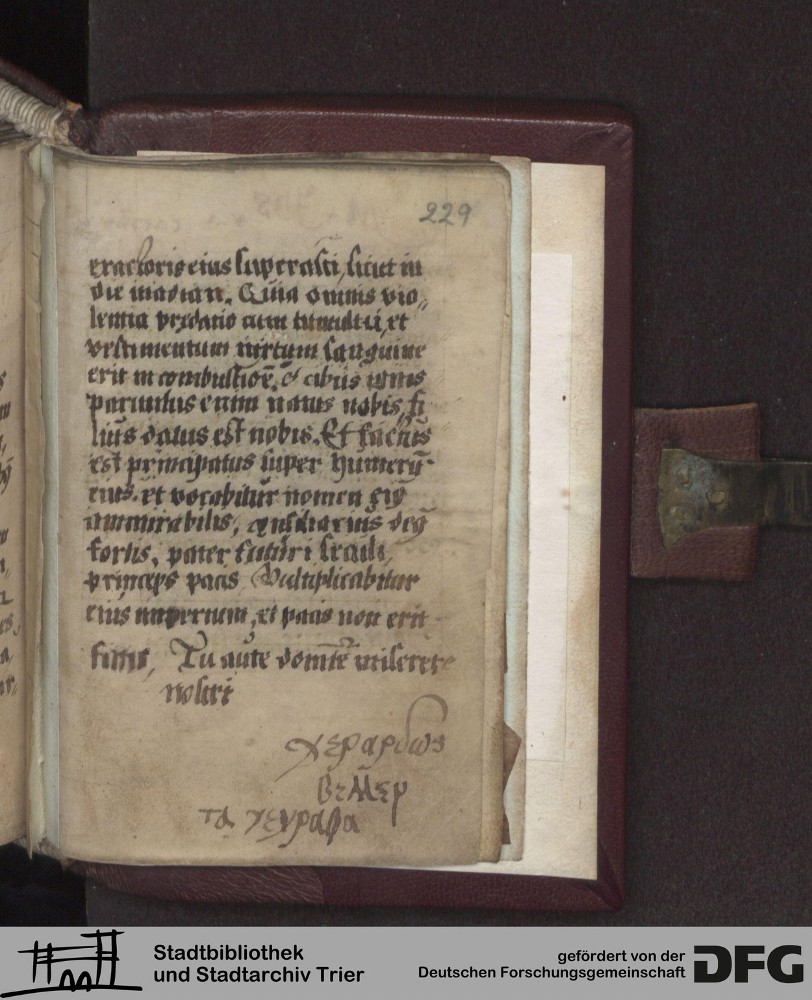 229
exactoris eius superasti, sicut in
die madian. Quia omnis vio„
lentia predatio cum tumultu, et
vestimentum mixtum sanguine
erit in combustioē, & cibus ignis
parvulus enim natus nobis, fi
lius datus est nobis. Et factus
est principatus super humerū
eius. et vocabitur nomen
ammirabilis, consiliarius
fortis, pater futuri seculi,
princeps pacis Multiplicabitur
eius imperium, et pacis non erit
finis, Tu aute domīe miserere
nostri
χεραρδως
βεμερ
τα γεγραφα
Stadtbibliothek
und Stadtarchiv Trier
gefördert von der
Deutschen Forschungsgemeinschaft
DFG